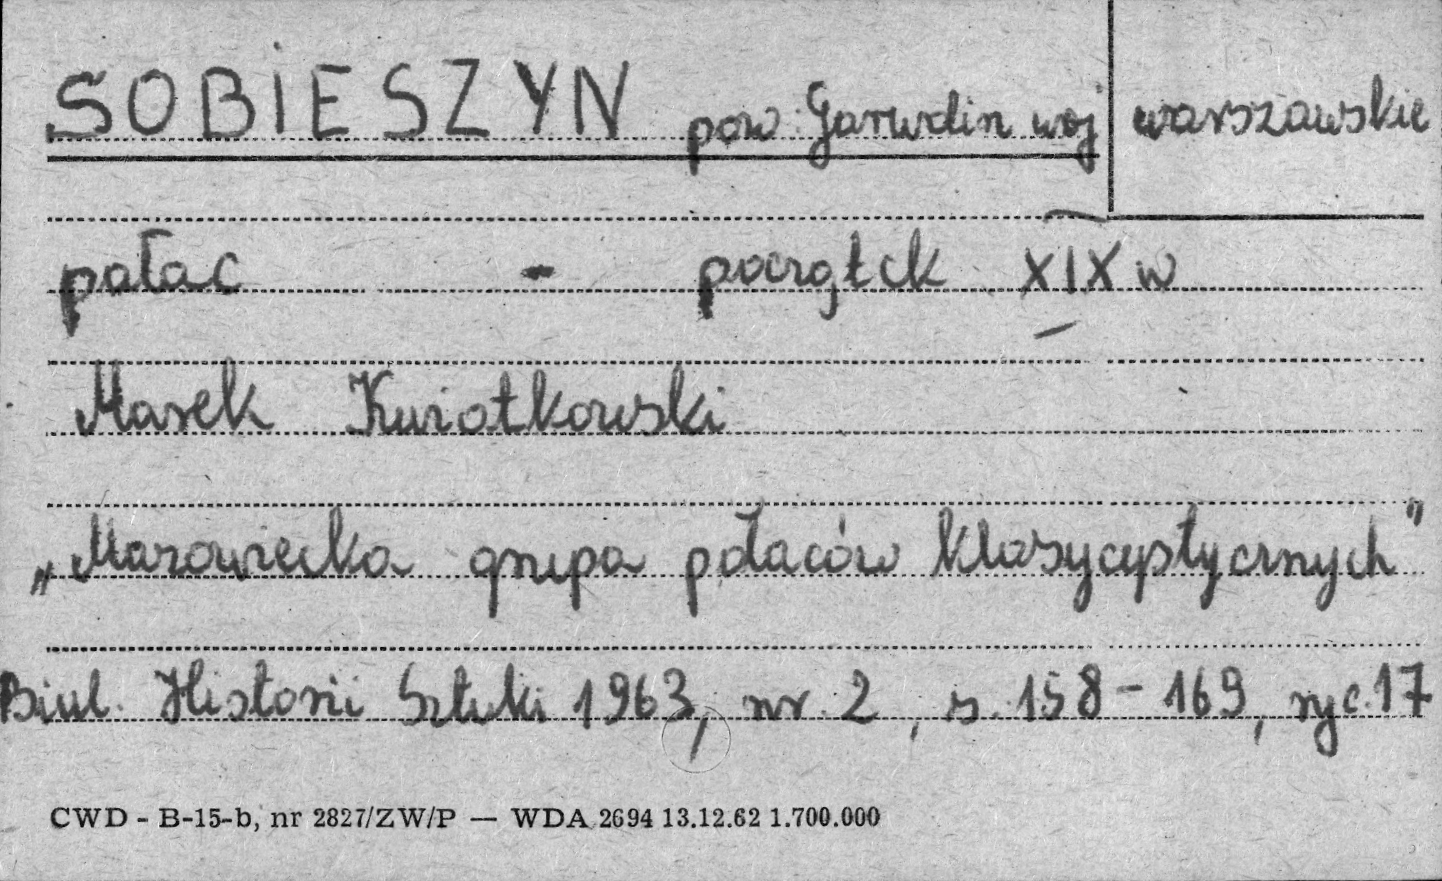 SOBIESZYN pow. Garwolin woj warszawskie
pałac - początek XIX w
Marek Kwiatkowski
„Mazowiecka grupa pałaców klasycystycznych”
Biul. Historii Sztuki 1963, nr. 2, s. 158-169, ryc. 17
CWD - B-15-b, nr 2827/ZW/P — WDA 2694 13.12.62 1.700.000